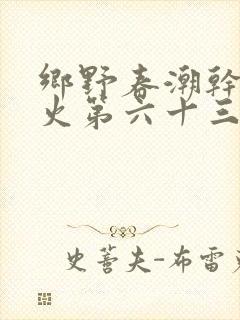 鄉野春潮幹
火第六十三
史蒼夫-布雷